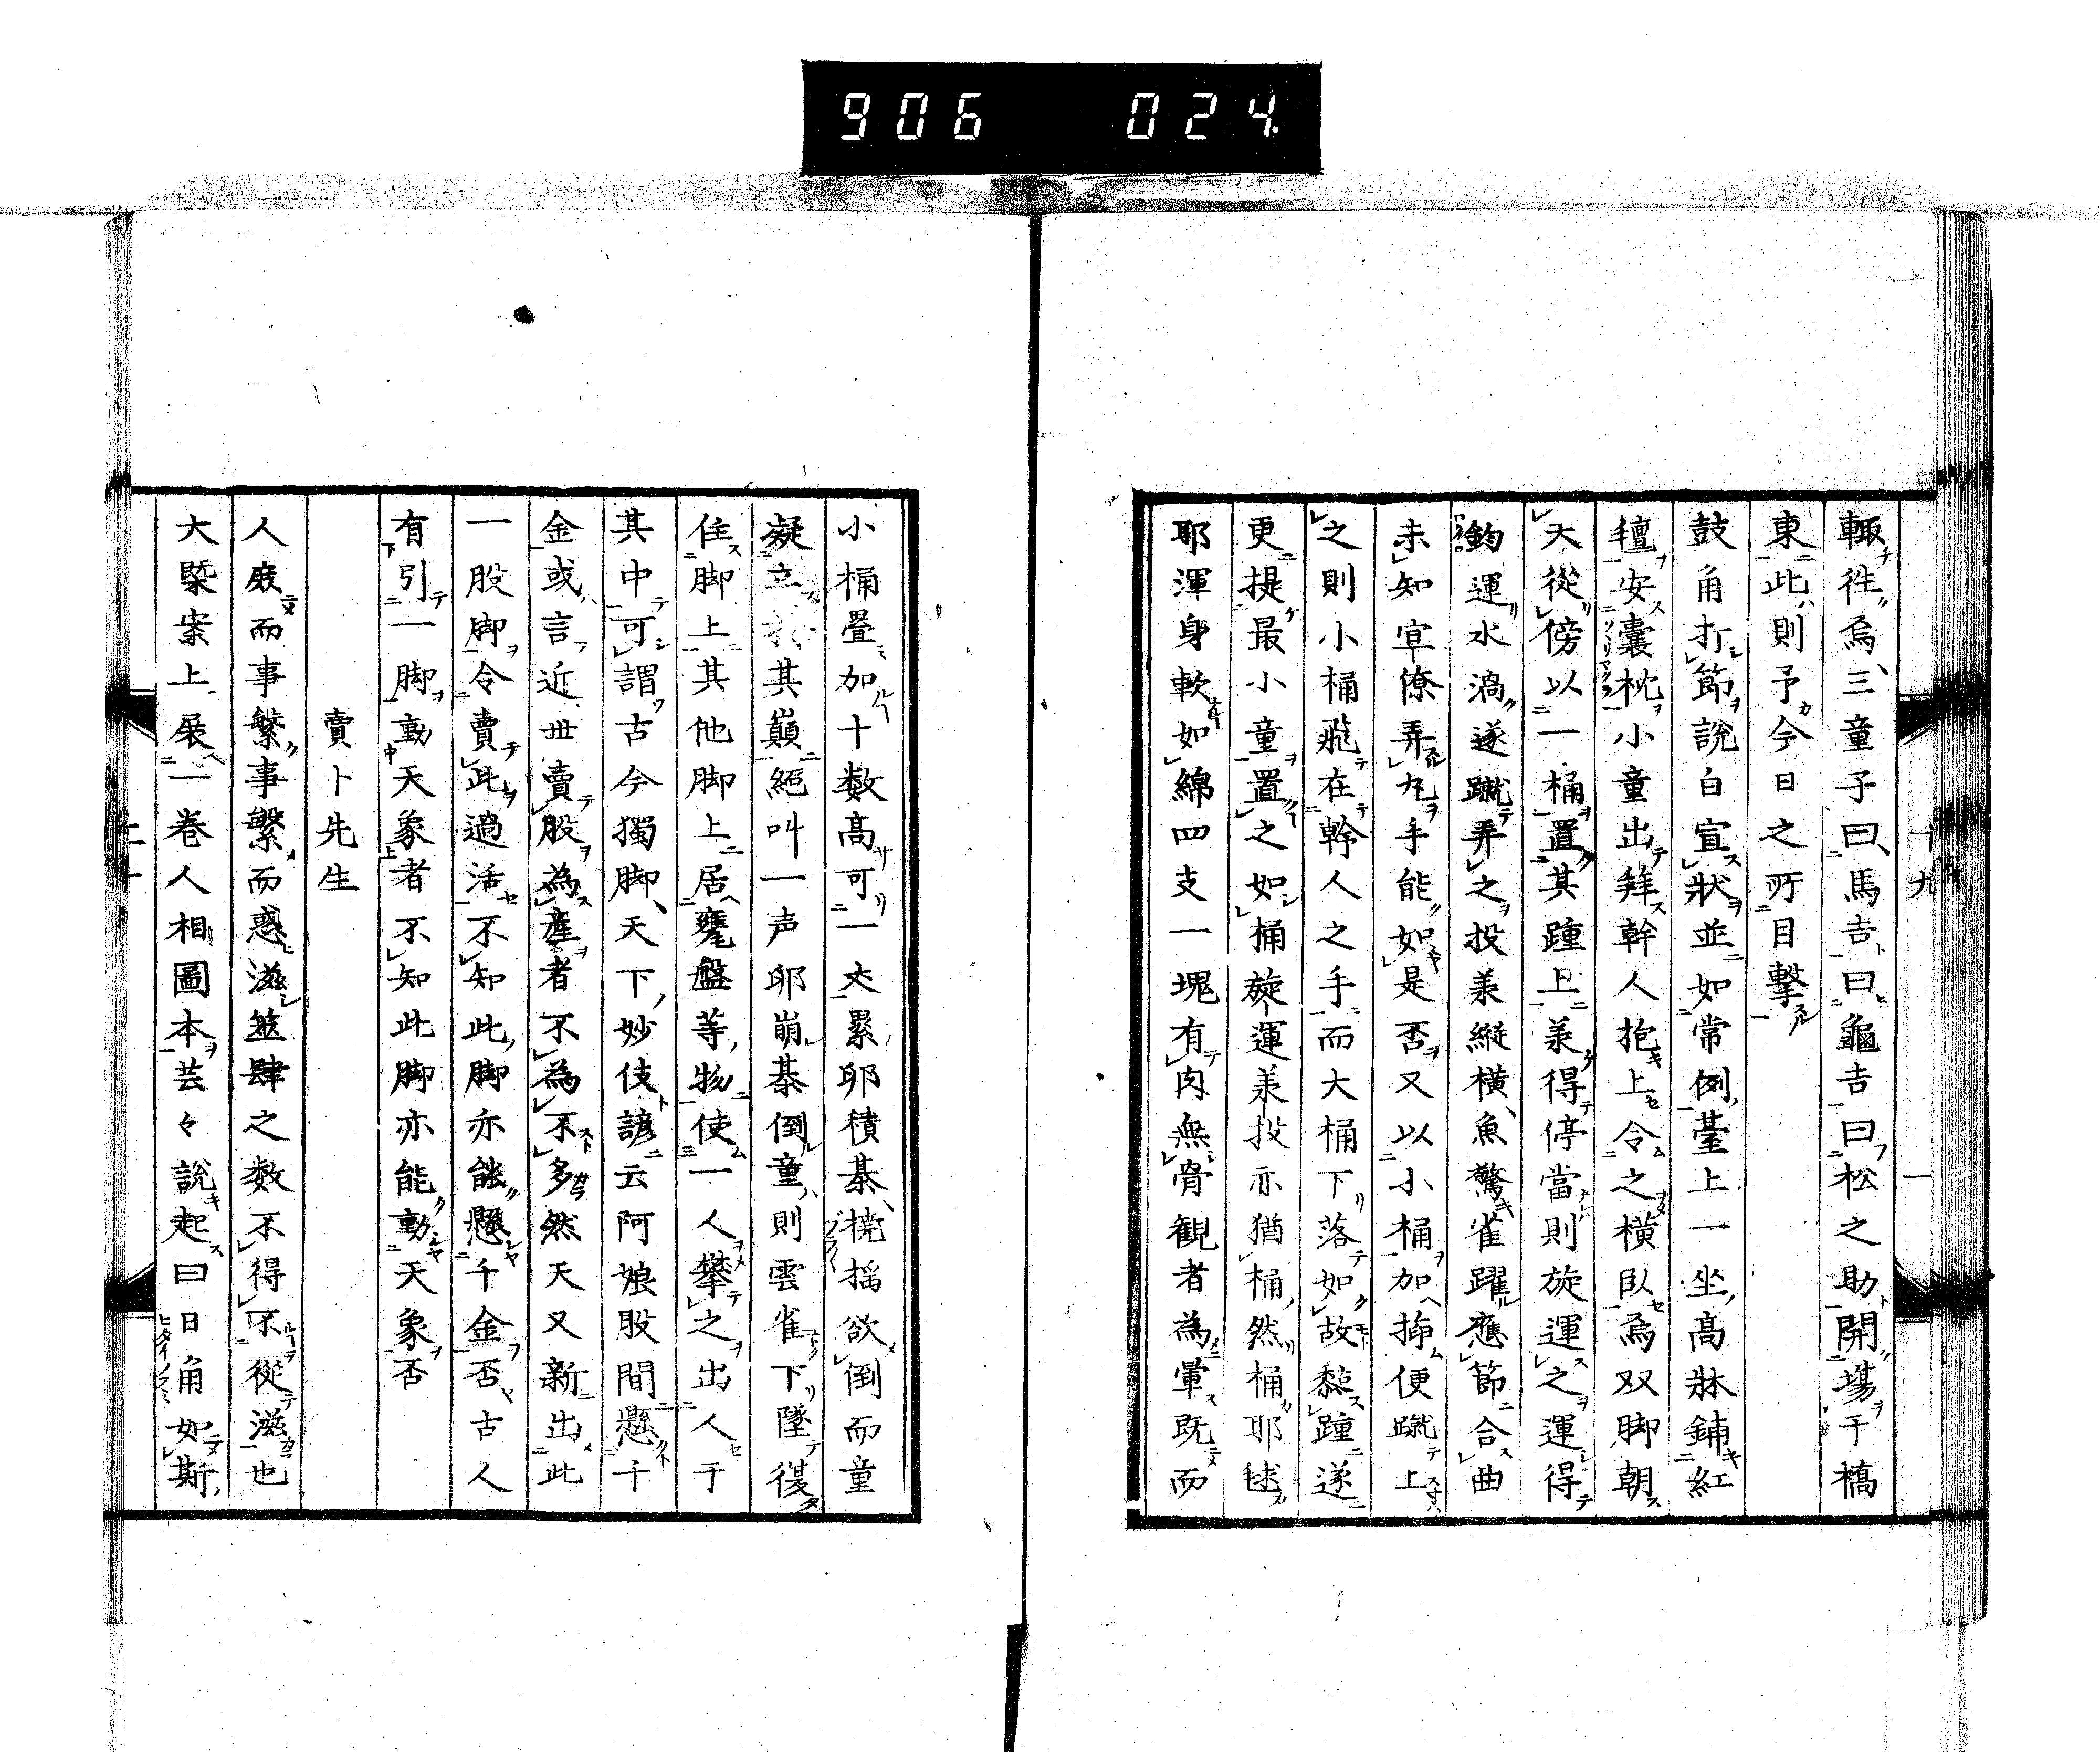 906 024
輙徃焉三童子曰馬吉曰龜吉曰松之助開場于橋
東此則予今日之所目擊
鼓角打節説白宣狀並如常例臺上一坐高牀鋪紅
氊安囊枕小童出拜幹人抱上令之横臥焉双脚朝
天從傍以一桶置其踵上羕得停當則旋運之運得
鈞運水渦遂蹴弄之投羕縦横魚驚雀躍應節合曲
未知宜僚弄丸手能如是否又以小桶加揷便蹴上
之則小桶飛在幹人之手而大桶下落如故黏踵遂
更提最小童置之如桶旋運羕投亦猶桶然桶耶毬
耶渾身軟如綿四支一塊有肉無骨観者為暈既而
小桶畳加十数高可一丈累卵積棊撓揺欲倒而童
凝立其巔絕叫一声卵崩棊倒童則雲雀下墜復
住脚上其他脚上居甕盤等物使一人攀之出人于
其中可謂古今獨脚天下妙伎諺云阿娘股間懸千
金或言近世賣股為產者不為不多然天又新出此
一股脚令賣此過活不知此脚亦能懸千金否古人
有引一脚動天象者不知此脚亦能動天象否
賣卜先生
人庶而事繁事繁而惑滋筮肆之数不得不從滋也
大槩案上展一巻人相圖本芸々説起曰日角如斯
十九
二十